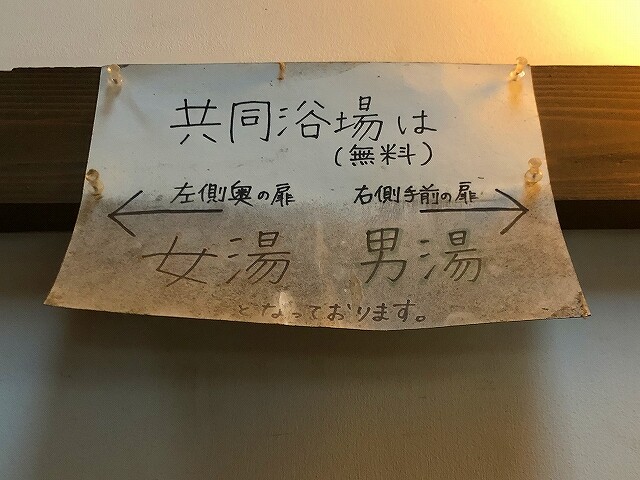 共同浴場は
(無料)
左側奥の扉 右側手前の扉
女湯 男湯
となっております。